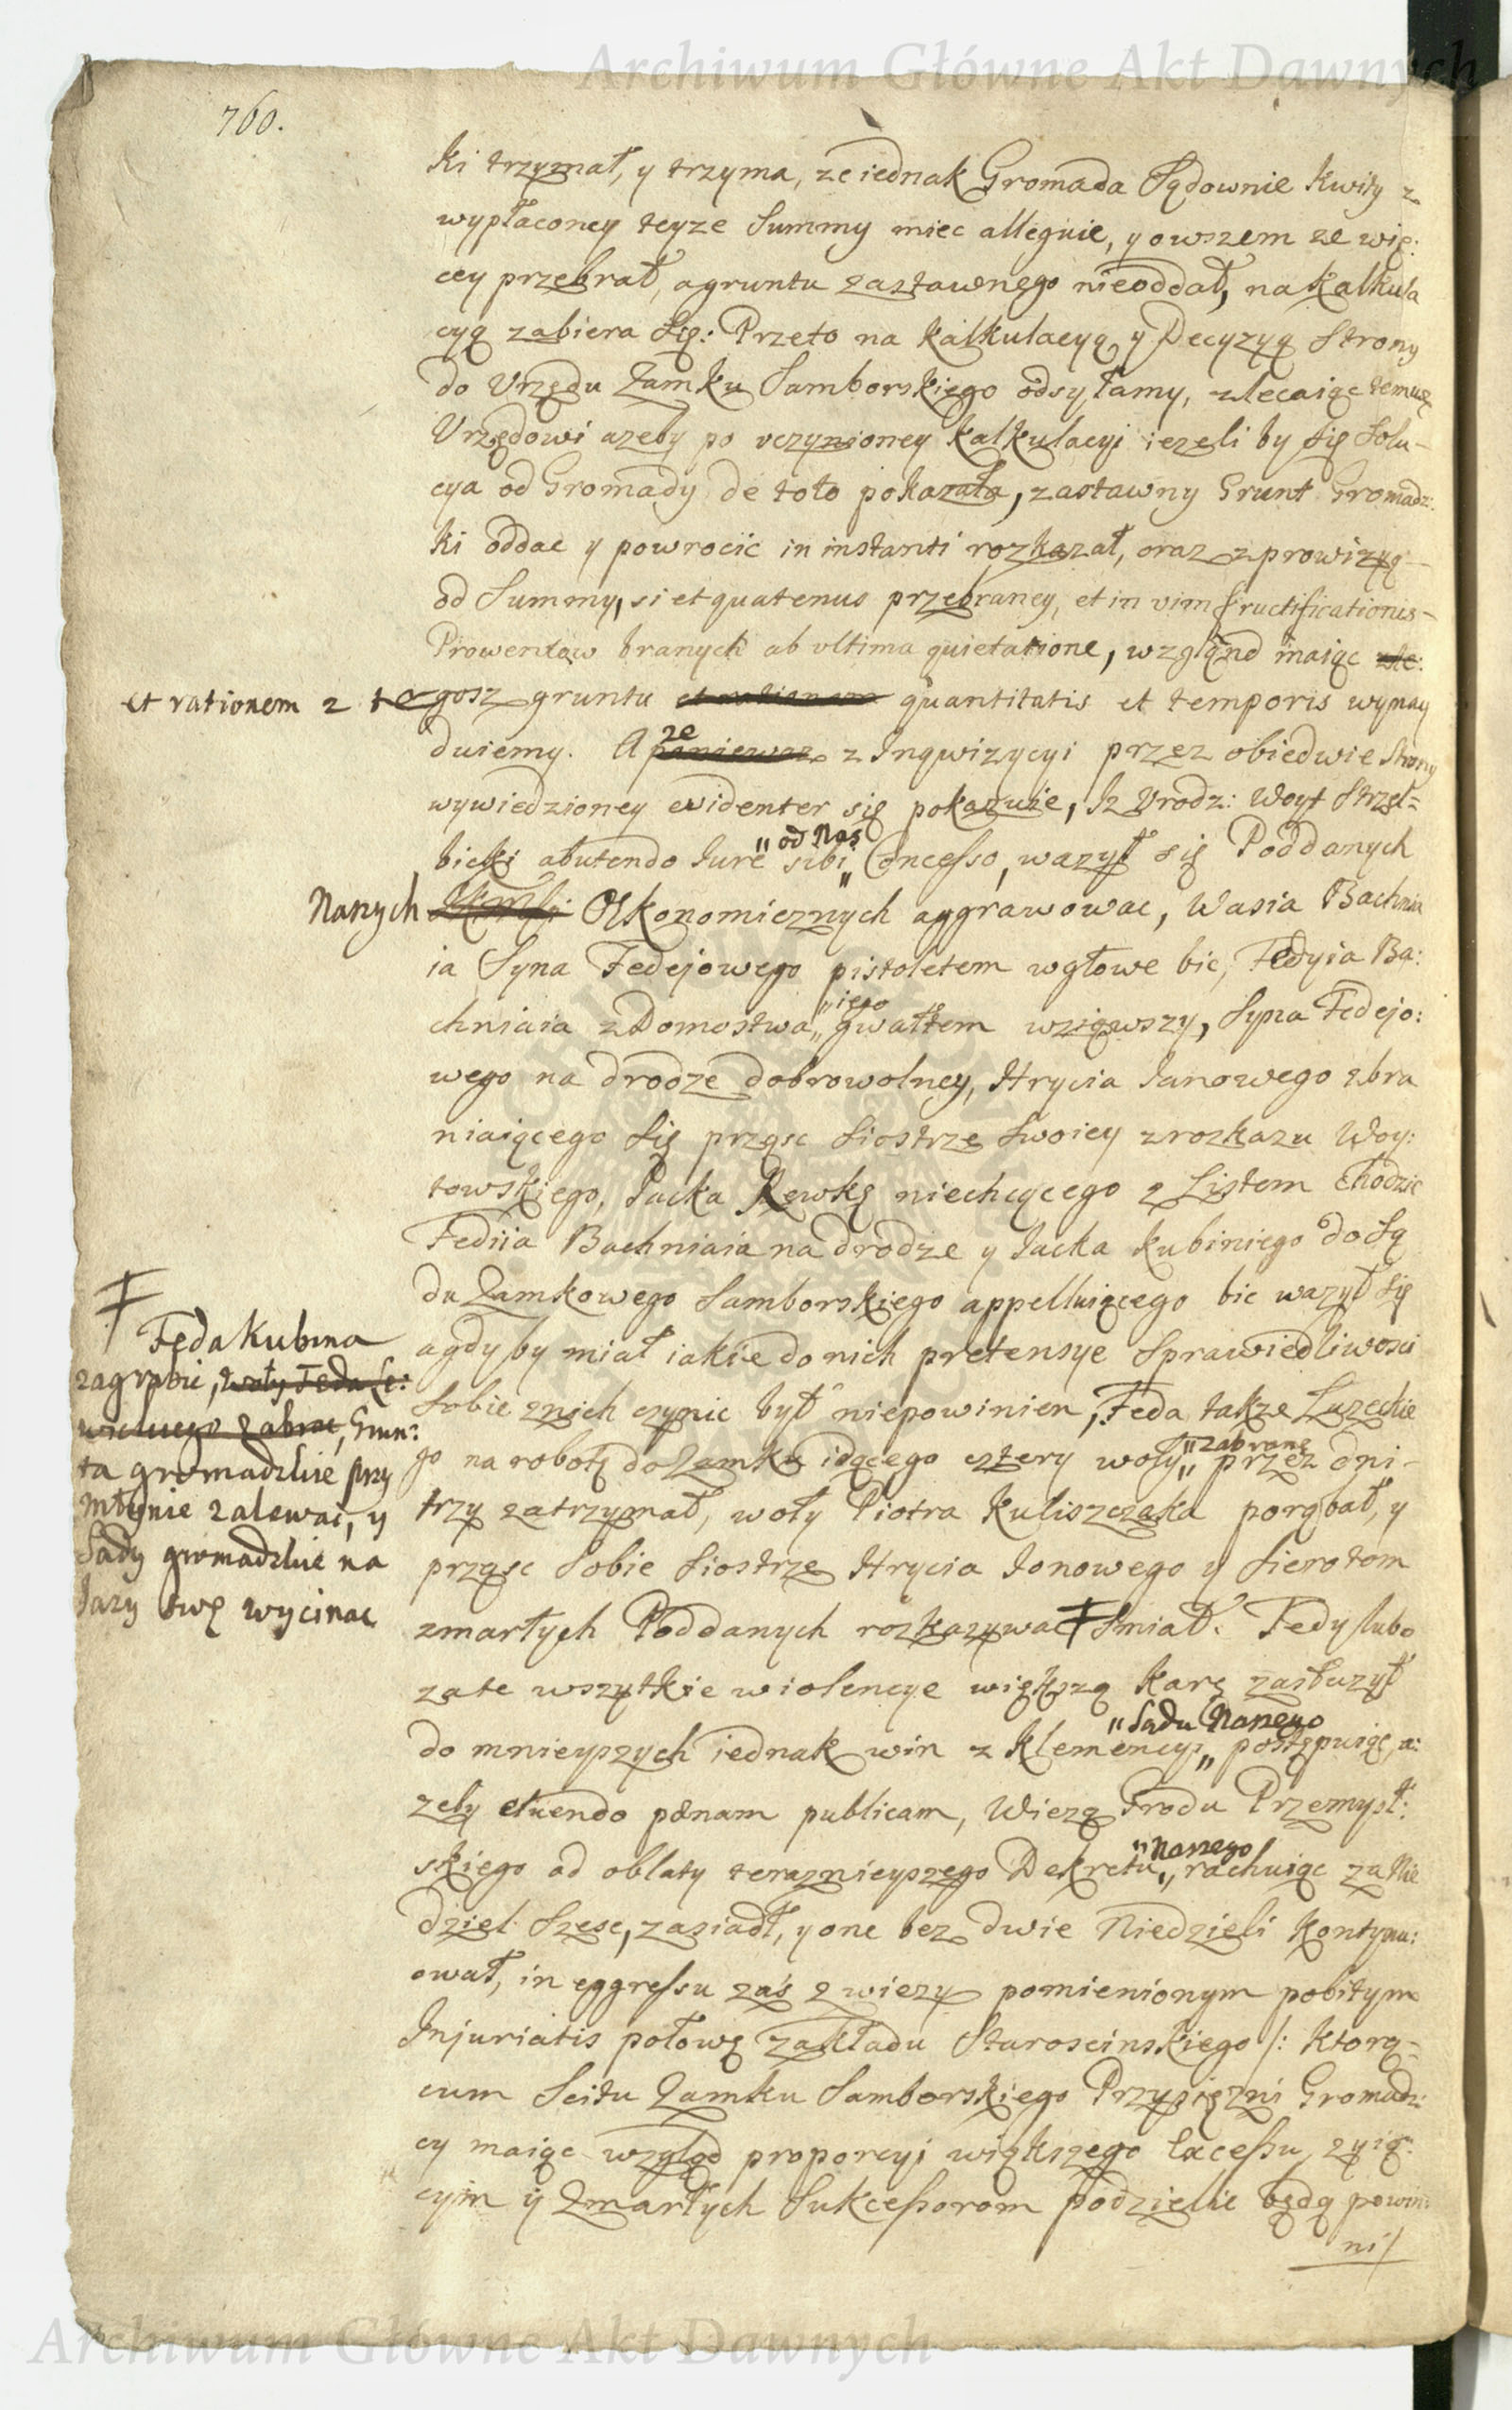 Archiwum Główne Akt Dawnych
760.
ki trzymał, y trzyma, ze iednak Gromada Sądownie kwity z
wypłaconey teyze Summy miec alleguie, y owszem ze wię:
cey przebrał, a gruntu zastawnego nieoddał, na kalkula
cyą zabiera się: Przeto na kalkulacyą y Decyzyą Strony
do Vrzędu Zamku Samborskiego odsyłamy, zlecaiąc temusz
Vrzędowi azeby po vczynioney kalkulacyi iezeli by się Solu-
cya od Gromady de toto pokazała, zastawny Grunt Gromadz:
ki oddac y powrocic in instanti rozkazał, oraz z prowizyą
od Summy, si et quatenus przebraney, et in vim fructificationis
Prowentow branych ab vltima quietatione, wzgląnd maiąc
et rationem z tegosz gruntu et rationem quantitatis et temporis wynay
duiemy. A poniewaz ze z Inqwizycyi przez obiedwie Strony
wywiedzioney evidenter się pokazuie, Iz Vrodz: Woyt Strzel=
bicki abutendo Iure " od Nas sibi " Concesso, wazył się Poddanych
Naszych Oekonomicznych aggrawowac, Wasia Bachnia
ia Syna Fedejowego pistoletem w głowe bic, Fedyia Ba:
chniaia z Domostwa " iego " gwałtem wziąwszy, Syna Fedejo:
wego na drodze dobrowolney, Hrycia Ianowego zbra
niaiącego się prząsc Siostrze Swoiey z rozkazu Woy:
towskiego, Iacka Rewkę niechcącego z Listem chodzic
Fediia Bachniaia na drodze y Iacka Kubiniego do Są
du Zamkowego Samborskiego appelluiącego bic wazył się
a gdy by miał iakie do nich pretensye Sprawiedliwosci
Sobie z nich czynic był niepowinien, Feda takze Luzeckie
go na robotę do Zamku idącego cztery woły " zabrane " przez dni
trzy zatrzymał, woły Piotra Kuliszczaka porąbał, y
prząsc Sobie Siostrze Hrycia Ionowego y Sierotom
zmarłych Poddanych rozkazywac Smiał. Tedy lubo
za te wszytkie wiolencye większą karę zasłuzył
do mnieyszych iednak win z klemencyi " Sądu Naszego " postępuiąc, a:
zeby eluendo pænam publicam, Wiezą Grodu Przemysl:
skiego ad oblaty teraznieyszego Dekretu " Naszego " rachuiąc za Nie
dziel Szesc, zasiadł, y one bez dwie Niedzieli kontynu:
ował, in eggressu zaś z wiezy pomienionym pobitym
Injuriatis połowę zakładu Staroscinskiego /: ktorą
cum Scitu Zamku Samborskiego Przysięzni Gromadz:
cy maiąc wzgląd proporcyi większego Excessu, zyią:
cym ij Zmarłych Sukcessorom podzielic będą powin
ni /
Feda Kubina
zagrabic, woły Feda
zabrac, Grun:
ta gromadzkie przy
młynie zalewac, y
Sady gromadzkie na
Iazy swe wycinac
Archiwum Główne Akt Dawnych